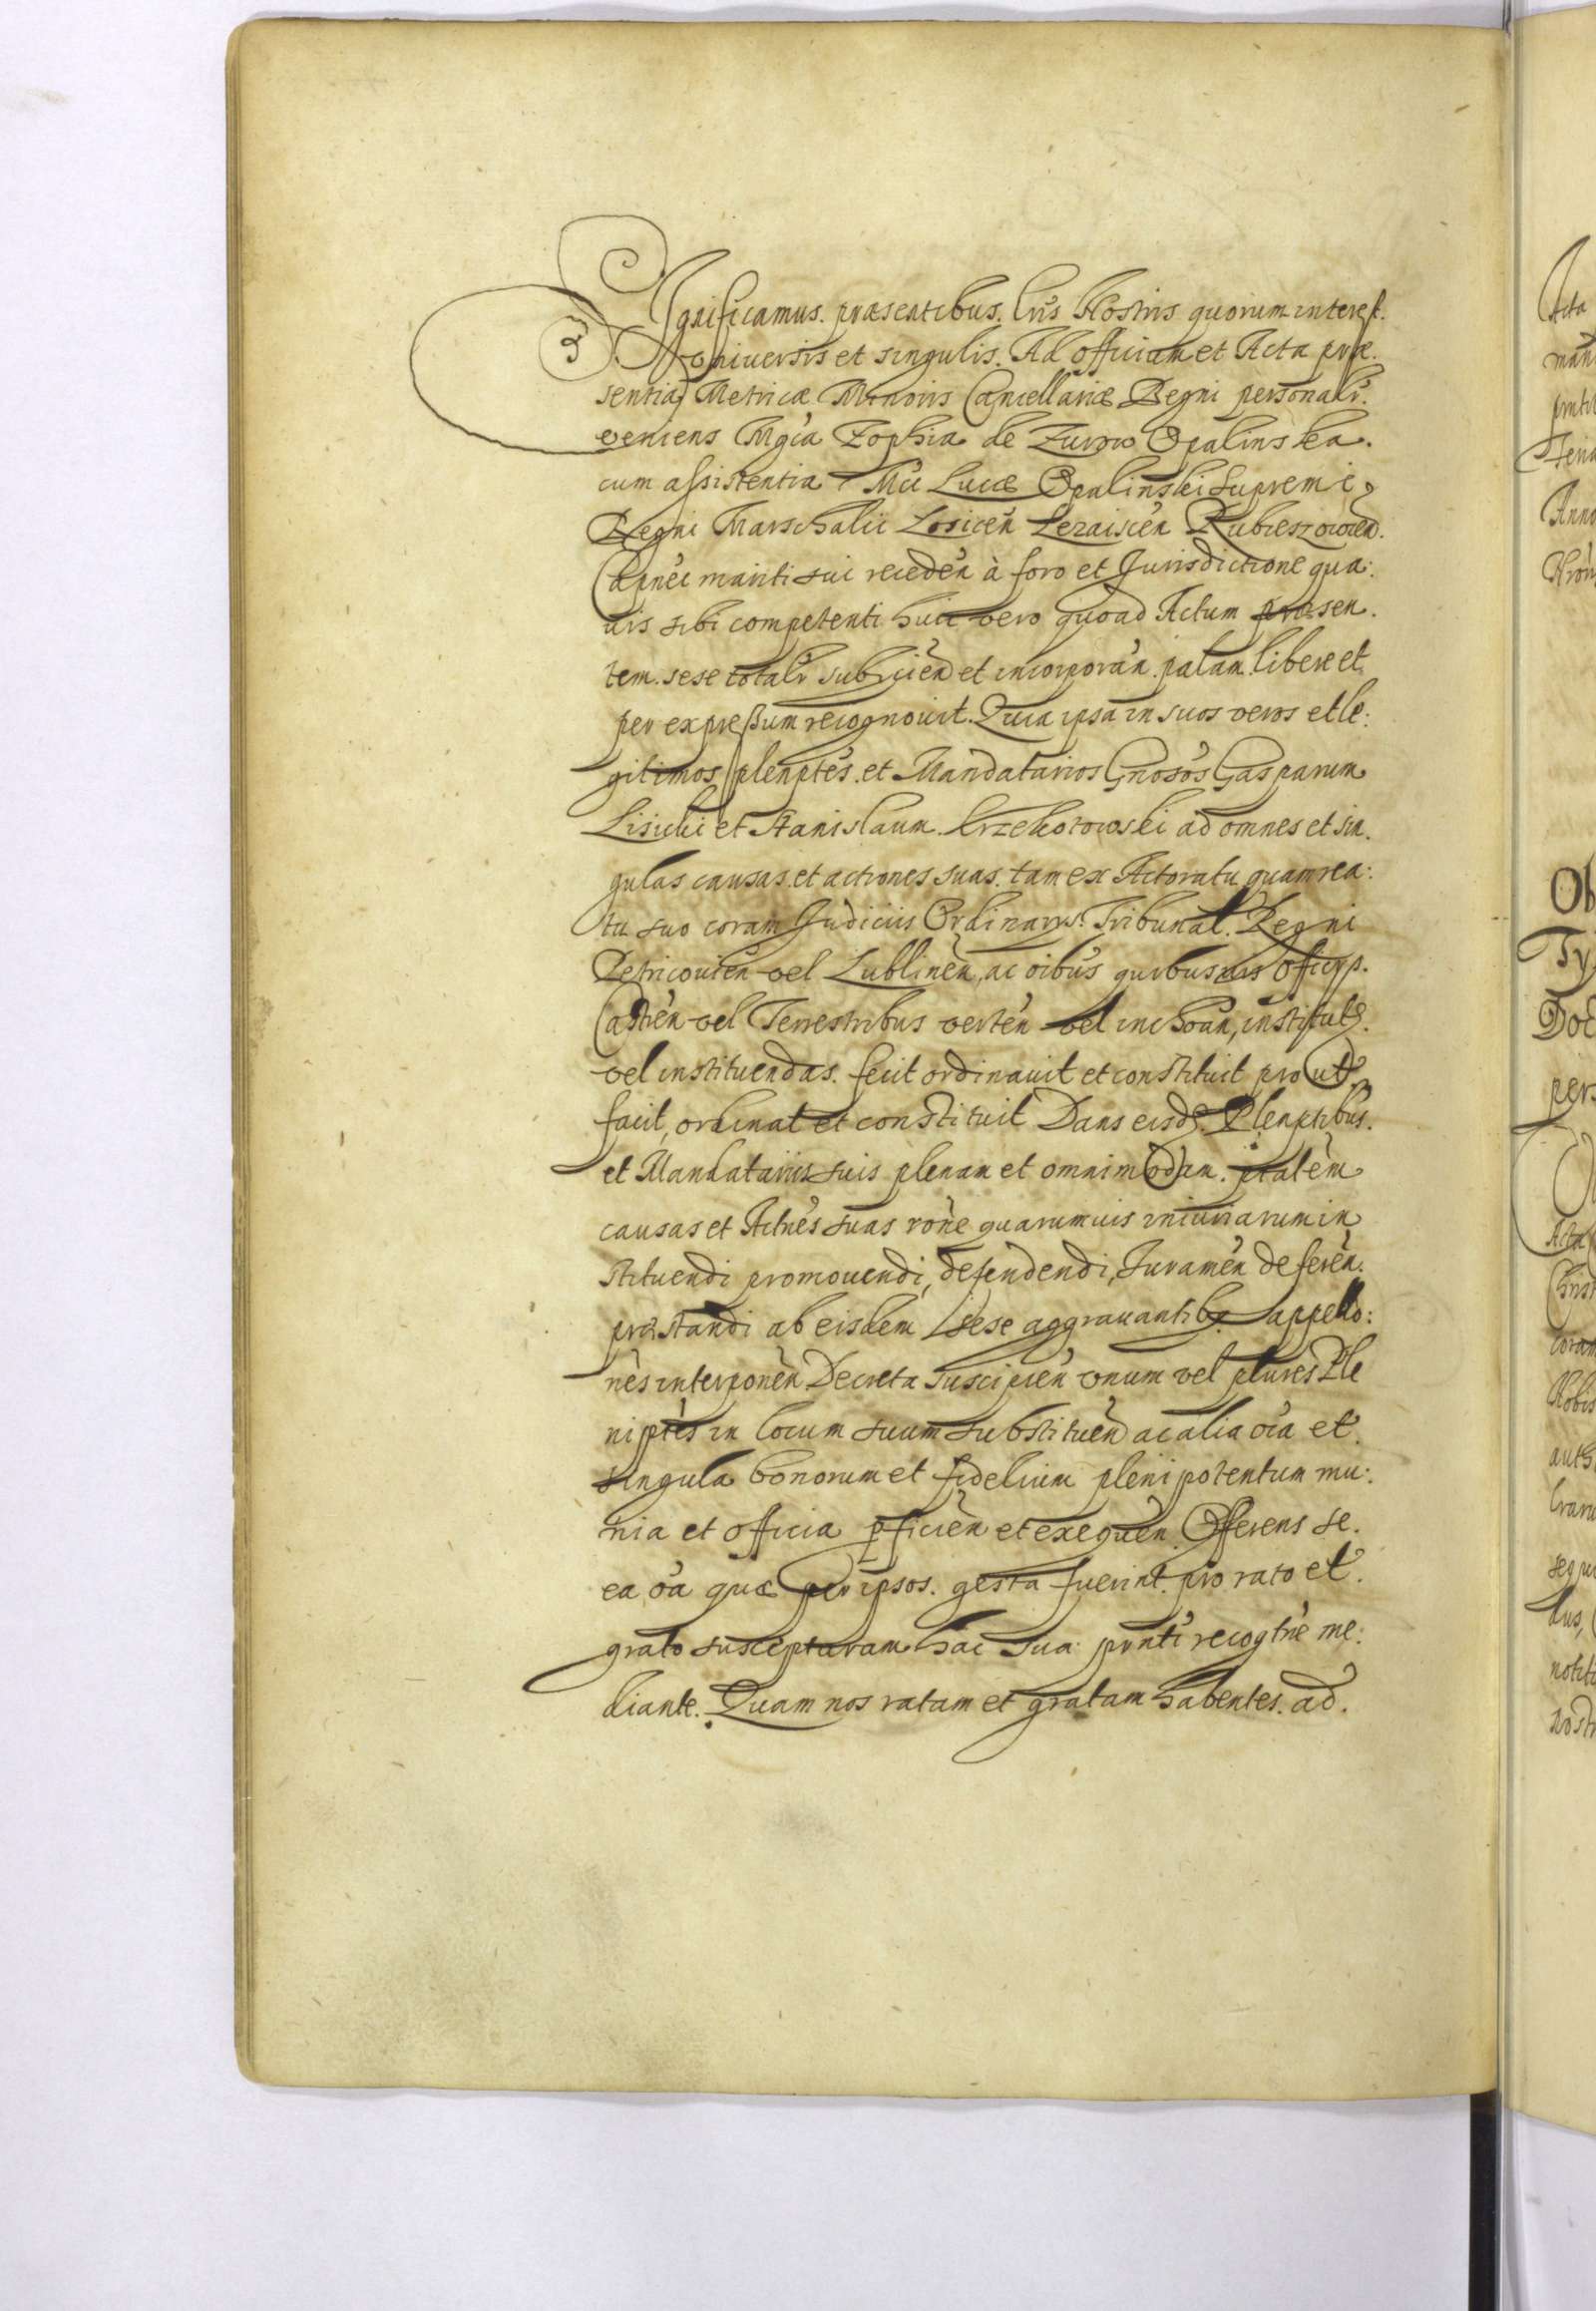 Significamus. præsentibus. Lris Nostris quorum interest.
vniversis et singulis. Ad officium et Acta præ.
sentia Metricæ Minoris Cancellariæ Regni personalr.
veniens Mgca Zophia de Zurow Opalinska.
cum assistentia Mci Lucæ Opalinski Supremi
Regni Marschalii Losicen̄ Lezaiscen̄ Rubieszowien̄.
Capnei mariti sui receden̄ à foro et Jurisdictione qua:
uis sibi competenti huic vero quoad Actum præsen.
tem. sese totalr̄ subijcien̄ et incorporan̄. palam. libere et
per expreßum recognouit. Quia ipsa in suos veros et le:
gitimos plenptes. et Mandatarios Gnosos Gasparum
Lisicki et Stanislaum. Krzekotowski ad omnes et sin.
gulas causas. et actiones suas. tam ex Actoratu quam rea:
tu suo coram Judiciis Ordinarys. Tribunal. Regni
Petricouien̄ vel Lublinen̄, ac oibus quibusuis Officys.
Castren̄ vel Terrestribus verten̄ vel inchoan̄, institut
vel instituendas. fecit ordinauit et constituit prout
facit, ordinat et constituit Dans eisd. Plenptibus.
et Mandatariis suis plenam et omnimodam. ptatem
causas et Actnes suas rone quarumuis iniuriarum in
stituendi promouendi, defendendi, Juramen̄ deferen̄.
præstandi ab eisdem sese aggrauantibz appello:
nes interponen̄ Decreta suscipien̄ vnum vel plures Ple
niptes in locum suum substituen̄ ac alia oia et
singula bonorum et fidelium plenipotentum mu:
nia et officia pficien̄ et exequen̄. Offerens se.
ea oia quæ per ipsos. gesta fuerint. pro rato et.
grato suscepturam hac sua pnnti recogtne me:
diante. Quam nos ratam et gratam habentes. ad.